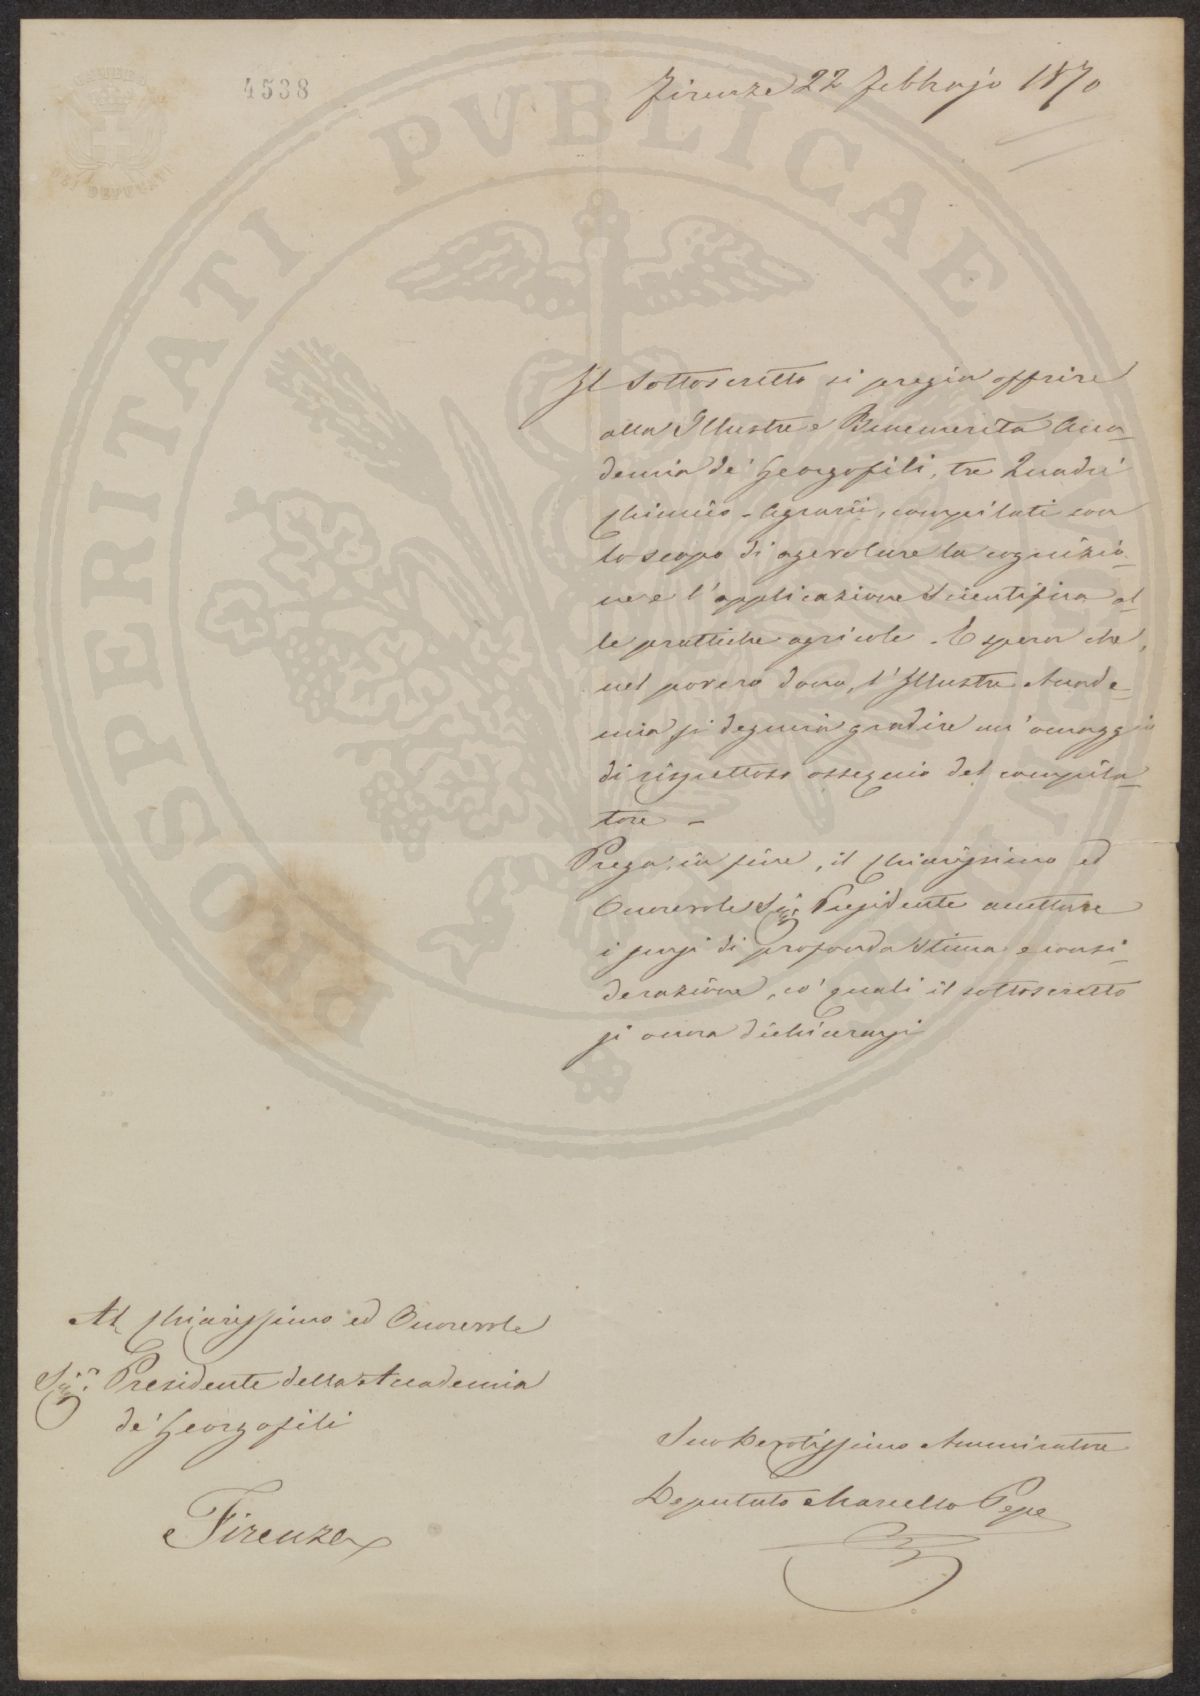 CAMERA
DEI DEPUTATI
4538
Firenze 22 Febbrajo 1870
PROSPERITATI PVBLICAE AVGENDAE
Il Sottoscritto si pregia offrire
alla Illustre e Benemerita Acca-
demia de' Georgofili, tre Quadri
Chimico-Agrarii, compilati con
lo scopo di agevolare la cognizio-
ne e l'applicazione Scientifica al-
le prattiche agricole. E spera che,
nel povero dono, l'Illustre Accade-
mia si degnerà gradire un'omaggio
di rispettoso ossequio del compila-
tore -
Prega, in fine, il Chiarissimo ed
Onorevole Sigr. Presidente accettare
i sensi di profonda Stima e consi-
derazione, co' quali il sottoscritto
si onora dichiararsi
Al Chiarissimo ed Onorevole
Sigr. Presidente della Accademia
de' Georgofili
Firenze
Suo Devotissimo Ammiratore
Deputato Marcello Pepe